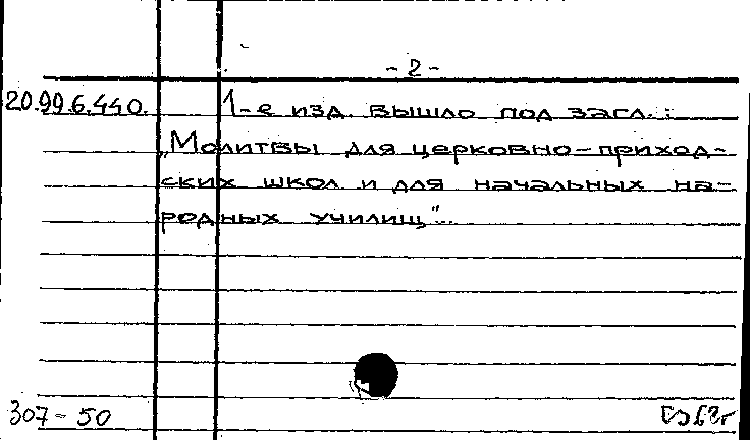 - 2 -
20.99.6.440. 1-е изд. вышло под загл.:
„Молитвы для церковно-приход-
ских школ и для начальных на-
родных училищ".
307-50